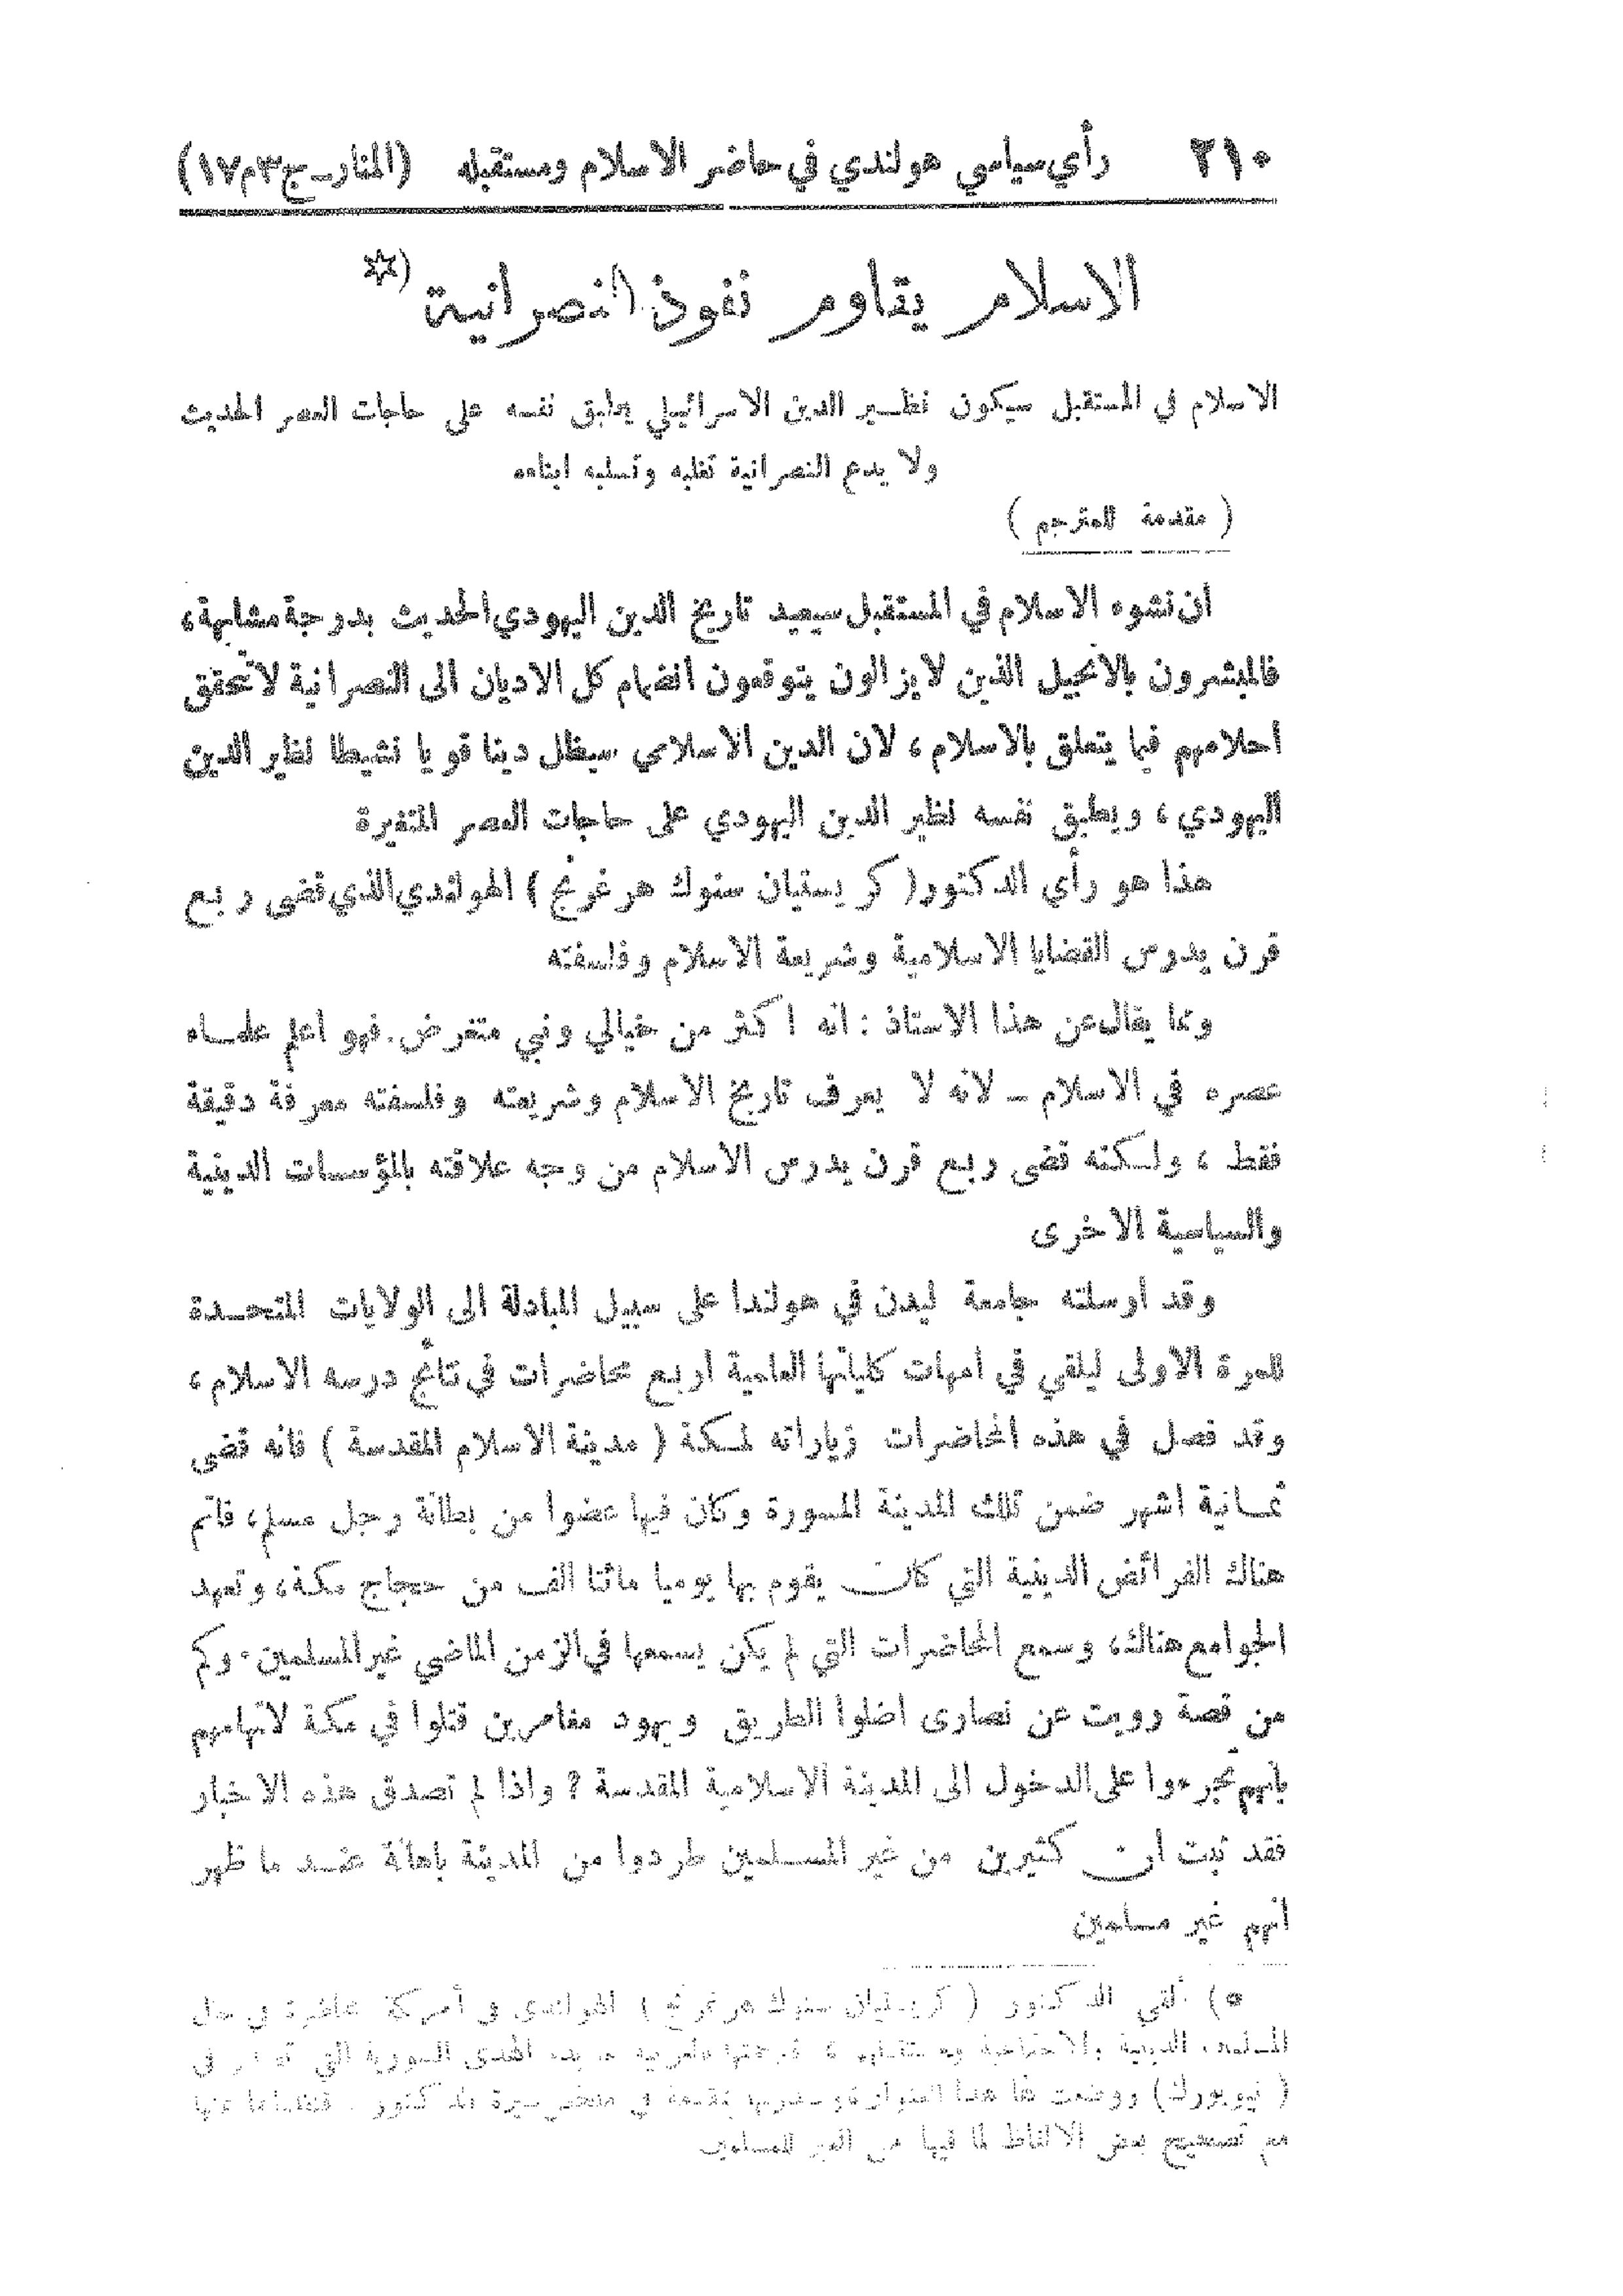 ٢١٠ رأي سياسي هولندي في حاضر الاسلام ومستقبله (المنار_ج٣م١٧)
الاسلام يقاوم نفوذ النصرانية (*
الاسلام في المستقبل سيكون نظير الدين الاسرائيلي يطبق نفسه على حاجات العصر الحديث
ولا يدع النصرانية تغلبه وتسلبه ابناءه
( مقدمة للمترجم )
ان نشوء الاسلام في المستقبل سيعيد تاريخ الدين اليهودي الحديث بدرجة مشابهة،
فالمبشرون بالانجيل الذين لا يزالون يتوقعون انضمام كل الاديان الى النصرانية لا تتحقق
احلامهم فيما يتعلق بالاسلام ، لان الدين الاسلامي سيظل دينا قويا نشيطا نظير الدين
اليهودي ، ويطبق نفسه نظير الدين اليهودي على حاجات العصر المتغيرة
هذا هو رأي الدكتور ( كريستيان سنوك هرغرنج ) الهولندي الذي قضى ربع
قرن يدرس القضايا الاسلامية وشريعة الاسلام وفلسفته
ومما يقال عن هذا الاستاذ : انه اكثر من خيالي ونبي متغرض . فهو اعلم علماء
عصره في الاسلام _ لانه لا يعرف تاريخ الاسلام وشريعته وفلسفته معرفة دقيقة
فقط ، ولكنه قضى ربع قرن يدرس الاسلام من وجه علاقته بالمؤسسات الدينية
والسياسية الاخرى
وقد ارسلته جامعة ليدن في هولندا على سبيل المبادلة الى الولايات المتحدة
للمرة الاولى ليلقي في امهات كلياتها العلمية اربع محاضرات في نتائج درسه الاسلام ،
وقد فصل في هذه المحاضرات زياراته لمكة ( مدينة الاسلام المقدسة ) فانه قضى
ثمانية اشهر ضمن تلك المدينة المسورة وكان فيها عضوا من بطانة رجل مسلم ، فاتم
هناك الفرائض الدينية التي كان يقوم بها يوميا مائتا الف من حجاج مكة ، وتعهد
الجوامع هناك ، وسمع المحاضرات التي لم يكن يسمعها في الزمن الماضي غير المسلمين . وكم
من قصة رويت عن نصارى اضلوا الطريق ويهود مغامرين قتلوا في مكة لاتهامهم
بانهم تجرءوا على الدخول الى المدينة الاسلامية المقدسة ؟ واذا لم تصدق هذه الاخبار
فقد ثبت ان كثيرين من غير المسلمين طردوا من المدينة باهانة عند ما ظهر
انهم غير مسلمين
*) ألقى الدكتور ( كريستيان سنوك هرغرنج ) الهولندي في أمريكة محاضرة في حال
المسلمين الدينية والاجتماعية ومستقبلهم ، فترجمتها بالعربية جريدة الهدى السورية التي تصدر في
( نيويورك ) ووضعت لها هذا العنوان مقدمة في مختصر سيرة الدكتور . فنقلناها عنها
مع تصحيح بعض الالفاظ لما فيها من العبر للمسلمين